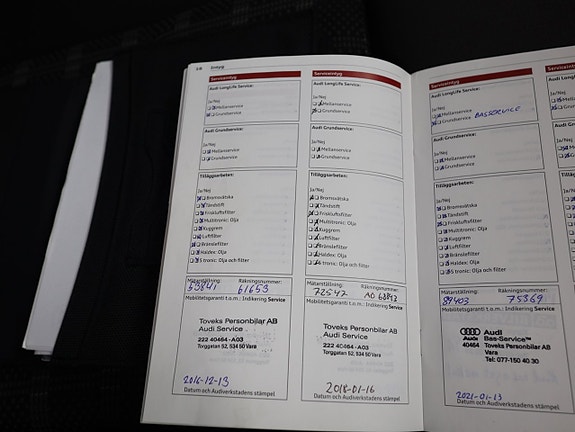 10 Intyg
Serviceintyg
Audi LongLife Service:
Ja/Nej
Mellanservice
Grundservice
Audi Grundservice:
Mellanservice
Grundservice
Tilläggsarbeten:
Ja/Nej
Bromsvätska
Tändstift
Friskluftsfilter
Multitronic: Olja
Kuggrem
Luftfilter
Bränslefilter
Haldex: Olja
S tronic: Olja och filter
Mätarställning: Räkningsnummer:
61653
Mobilitetsgaranti t.o.m.: Indikering Service
Toveks Personbilar AB
Audi Service
222 40464 - A03
Torggatan 52, 534 50 Vara
2016-12-13
Datum och Audiverkstadens stämpel
Serviceintyg
Audi LongLife Service:
Ja/Nej
Mellanservice
Grundservice
Audi Grundservice:
Mellanservice
Grundservice
Tilläggsarbeten:
Ja/Nej
Bromsvätska
Tändstift
Friskluftsfilter
Multitronic: Olja
Kuggrem
Luftfilter
Bränslefilter
Haldex: Olja
S tronic: Olja och filter
Mätarställning: Räkningsnummer:
72547
Mobilitetsgaranti t.o.m.: Indikering Service
Toveks Personbilar AB
Audi Service
222 40464 - A03
Torggatan 52, 534 50 Vara
2018-01-16
Datum och Audiverkstadens stämpel
Serviceintyg
Audi LongLife Service:
Ja/Nej
Mellanservice
Grundservice BASSERVICE
Audi Grundservice:
Mellanservice
Grundservice
Tilläggsarbeten:
Ja/Nej
Bromsvätska
Tändstift
Friskluftsfilter
Multitronic: Olja
Kuggrem
Luftfilter
Bränslefilter
Haldex: Olja
S tronic: Olja och filter
Mätarställning: Räkningsnummer:
89403 75369
Mobilitetsgaranti t.o.m.: Indikering Service
Audi
Audi Bas-Service™
40464 Toveks Personbilar AB
Vara
Tel: 077-150 40 30
2021-01-13
Datum och Audiverkstadens stämpel